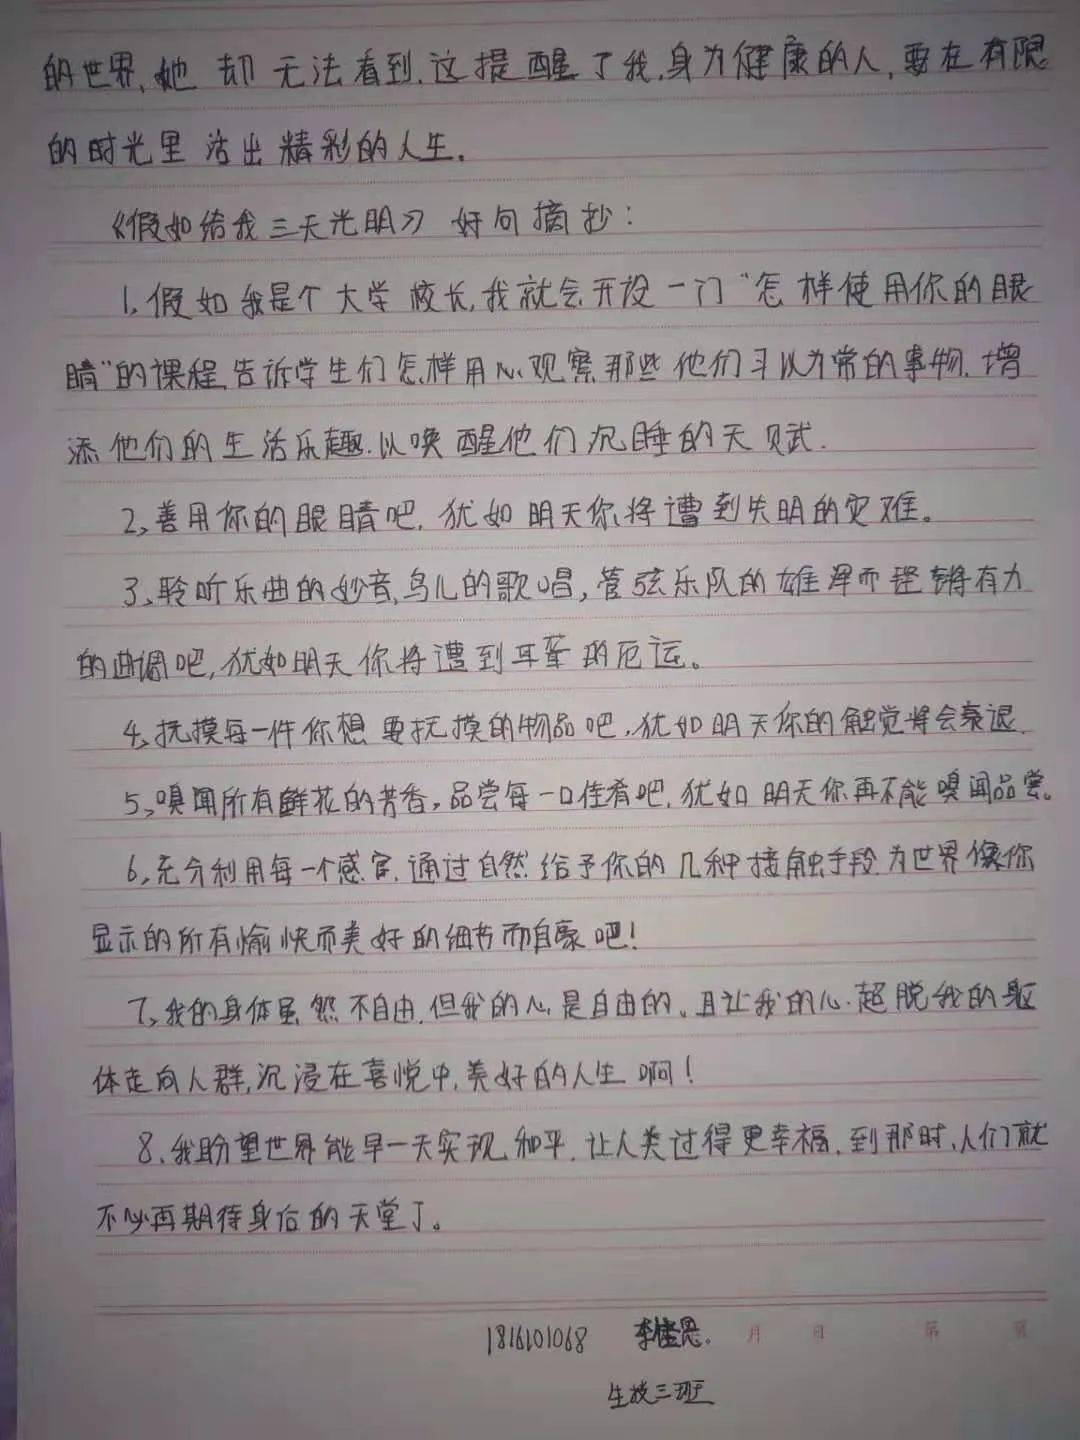 的世界,她却无法看到.这提醒了我,身为健康的人,要在有限
的时光里活出精彩的人生.
《假如给我三天光明》好句摘抄:
1、假如我是个大学校长,我就会开设一门“怎样使用你的眼
睛”的课程,告诉学生们怎样用心观察那些他们习以为常的事物.增
添他们的生活乐趣.以唤醒他们沉睡的天赋.
2、善用你的眼睛吧,犹如明天你将遭到失明的灾难。
3、聆听乐曲的妙音,鸟儿的歌唱,管弦乐队的雄浑而铿锵有力
的曲调吧,犹如明天你将遭到耳聋的厄运。
4、抚摸每一件你想要抚摸的物品吧,犹如明天你的触觉将会衰退.
5、嗅闻所有鲜花的芳香,品尝每一口佳肴吧,犹如明天你再不能嗅闻品尝。
6、充分利用每一个感官,通过自然给予你的几种接触手段,为世界像你
显示的所有愉快而美好的细节而自豪吧!
7、我的身体虽然不自由,但我的心是自由的。且让我的心超脱我的躯
体走向人群,沉浸在喜悦中,美好的人生啊!
8、我盼望世界能早一天实现和平,让人类过得更幸福,到那时,人们就
不必再期待身后的天堂了。
1816101068 李佳恩. 月 日 第 页
生技三班